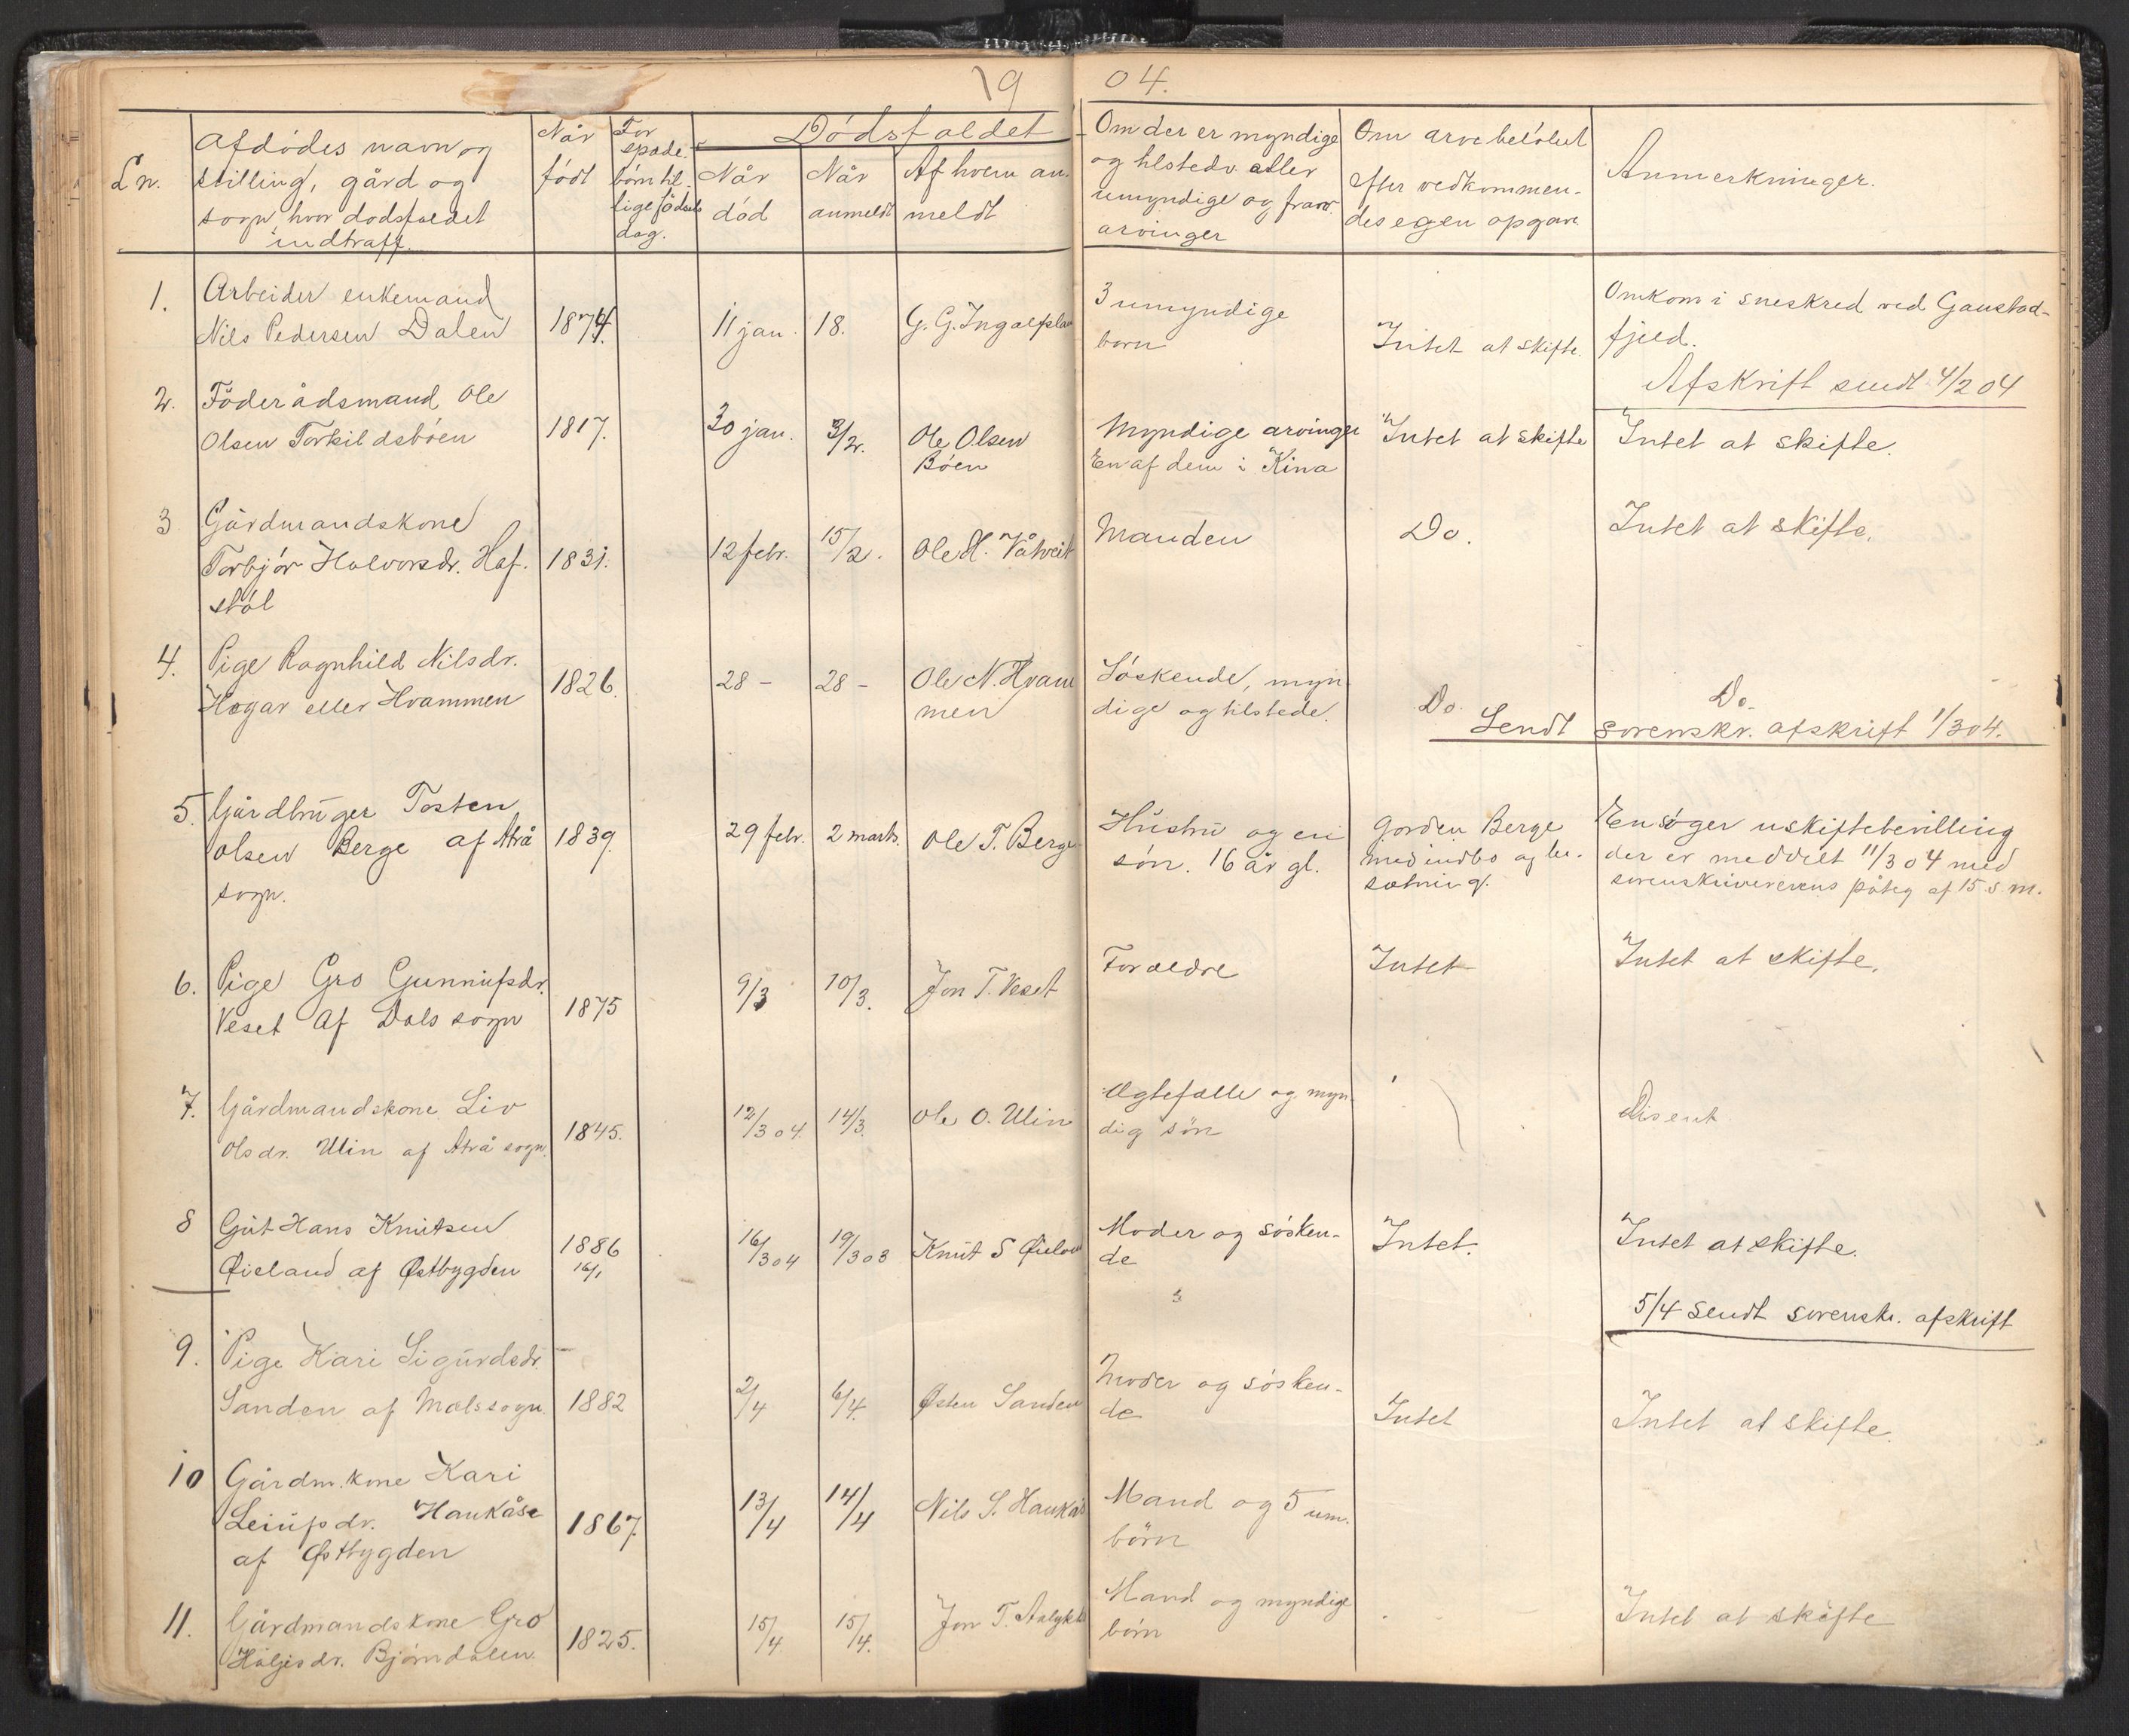 1904.
Ln.
Afdödes navn og
stilling, gård og
sogn, hvor dodsfaldet
indtraff.
Når
födt
For
spæde
börn til
lige fødsels
dag.
Dödsfaldet
Når
död
Når
anmeldt
Af hvem an-
meldt
Om der er myndige
og tilstede eller
umyndige og fravr.
arvinger
Om arvebelöbet
efter vedkommen-
des egen opgave
Anmerkninger.
1.
Arbeider enkemand
Nils Pedersen Dalen
1874.
11 jan.
18.
G. G. Ingolfsland
3 umyndige
born
Intet at skifte.
Omkom i sneskred ved Gaustad-
fjeld.
Afskrift sendt 4/2 04
2.
Föderådsmand Ole
Olsen Torkildsböen
1817.
30 jan.
3/2.
Ole Olsen
Böen
Myndige arvinger
En af dem i Kina
Intet at skifte
Intet at skifte.
3
Gårdmandskone
Torbjör Halvorsdr. Haf-
stöl
1831.
12 febr.
15/2.
Ole H. Våtveit
Manden
Do.
Intet at skifte.
4.
Pige Ragnhild Nilsdr.
Hogar eller Hvammen
1826.
28 -
28 -
Ole N. Hvam
men
Söskende, myn
dige og tilstede.
Do.
Do.
Sendt sorenskr. afskrift 1/3 04.
5.
Gårdbruger Tosten
Olsen Berge af Atrå
sogn.
1839.
29 febr.
2 marts.
Ole T. Berge
Hustru og en
sön. 16 år gl.
Gorden Berge
med indbo og be-
sætning.
Ensöger uskiftebevilling
der er meddelt 11/3 04 med
sorenskriverens påteg af 15 s. m.
6.
Pige Gro Gunnufsdr.
Veset af Dals sogn
1875
9/3
10/3.
Jon T. Veset
Forældre
Intet
Intet at skifte.
7.
Gårdmandskone Liv
Olsdr. Ulin af Atrå sogn.
1845.
12/3 04.
14/3.
Ole O. Ulin
Ægtefælle og myn
dig sön
8
Gut Hans Knutsen
Øieland af Østbygden
1886
16/1
16/3 04
19/3 03
Knut S Øieland
Moder og sösken-
de
Intet.
Intet at skifte.
5/4 sendt sorenskr. afskrift
9.
Pige Kari Sigurdsdr.
Sanden af Mæls sogn.
1882
2/4
6/4.
Østen Sanden
Moder og sösken-
de
Intet
Intet at skifte.
10
Gårdm. kone Kari
Leiufsdr. Haukåse
af Østbygden
1867.
13/4
14/4
Nils S. Haukås
Mand og 5 um.
börn
11.
Gårdmandskone Gro
Höljesdr. Bjørndalen.
1825.
15/4
15/4.
Jon T.
Mand og myndige
börn
Intet at skifte